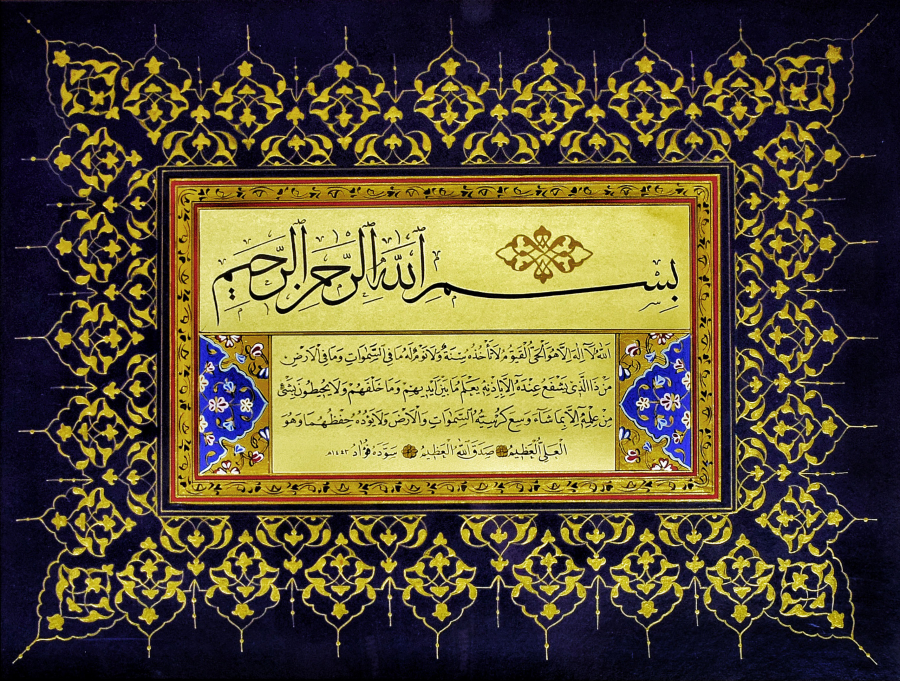 بِسْمِ اللّٰهِ الرَّحْمٰنِ الرَّحِيمِ
اَللّٰهُ لَا اِلٰهَ اِلَّا هُوَ الْحَىُّ الْقَيُّومُ لَا تَأْخُذُهُ سِنَةٌ وَلَا نَوْمٌ لَهُ مَا فِى السَّمٰوَاتِ وَمَا فِى الْاَرْضِ
مَنْ ذَا الَّذِى يَشْفَعُ عِنْدَهُ اِلَّا بِاِذْنِهِ يَعْلَمُ مَا بَيْنَ اَيْدِيهِمْ وَمَا خَلْفَهُمْ وَلَا يُحِيطُونَ بِشَىْءٍ
مِنْ عِلْمِهِ اِلَّا بِمَا شَاءَ وَسِعَ كُرْسِيُّهُ السَّمٰوَاتِ وَالْاَرْضَ وَلَا يَؤُدُهُ حِفْظُهُمَا وَهُوَ
الْعَلِىُّ الْعَظِيمُ صَدَقَ اللّٰهُ الْعَظِيمُ سَوَّدَهُ فُؤَاد ١٤٤٣هـ